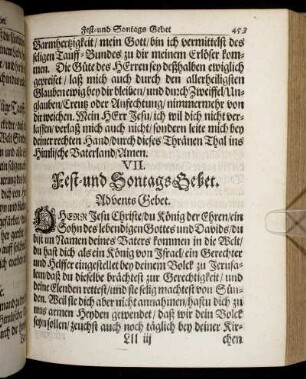 Fest-und Sontags Gebet 453
Barmhertzigkeit/ mein Gott/ bin ich vermittelst des
seligen Tauff-Bundes zu dir meinem Erlöser kom-
men. Die Güte des HErren sey deßhalben ewiglich
gepreiset/ laß mich auch durch den allerheiligsten
Glauben ewig bey dir bleiben/ und durch Zweiffel/ Un-
glauben/ Creutz oder Anfechtung/ nimmermehr von
dir weichen. Mein HErr Jesu/ ich wil dich nicht ver-
lassen/ verlaß mich auch nicht/ sondern leite mich bey
deiner rechten Hand/ durch dieses Thränen Thal ins
Himlische Vaterland/ Amen.
VII.
Fest-und Sontags-Gebet.
Advents Gebet.
O HERR Jesu Christe/ du König der Ehren/ ein
Sohn des lebendigen Gottes und Davids/ du
bist im Namen deines Vaters kommen in die Welt/
du hast dich als ein König von Israel/ ein Gerechter
und Helffer eingestellet bey deinem Volck zu Jerusa-
lem/ daß du dieselbe brächtest zur Gerechtigkeit/ und
deine Elenden rettest/ und sie selig machtest von Sün-
den. Weil sie dich aber nicht annahmen/ hastu dich zu
uns armen Heyden gewendet/ daß wir dein Volck
seyn sollen/ zeuchst auch noch täglich bey deiner Kir-
Lll iij chen